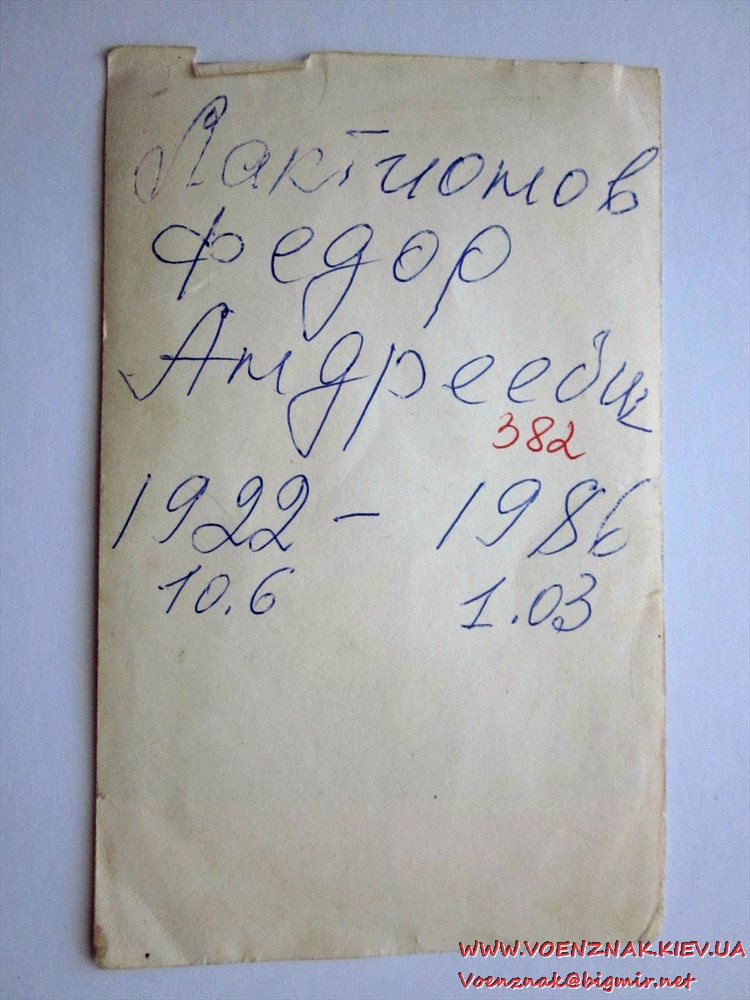 Лактионов
Федор
Андреевич
382
1922 - 1986
10.6 1.03
WWW.VOENZNAK.KIEV.UA
Voenznak@bigmir.net